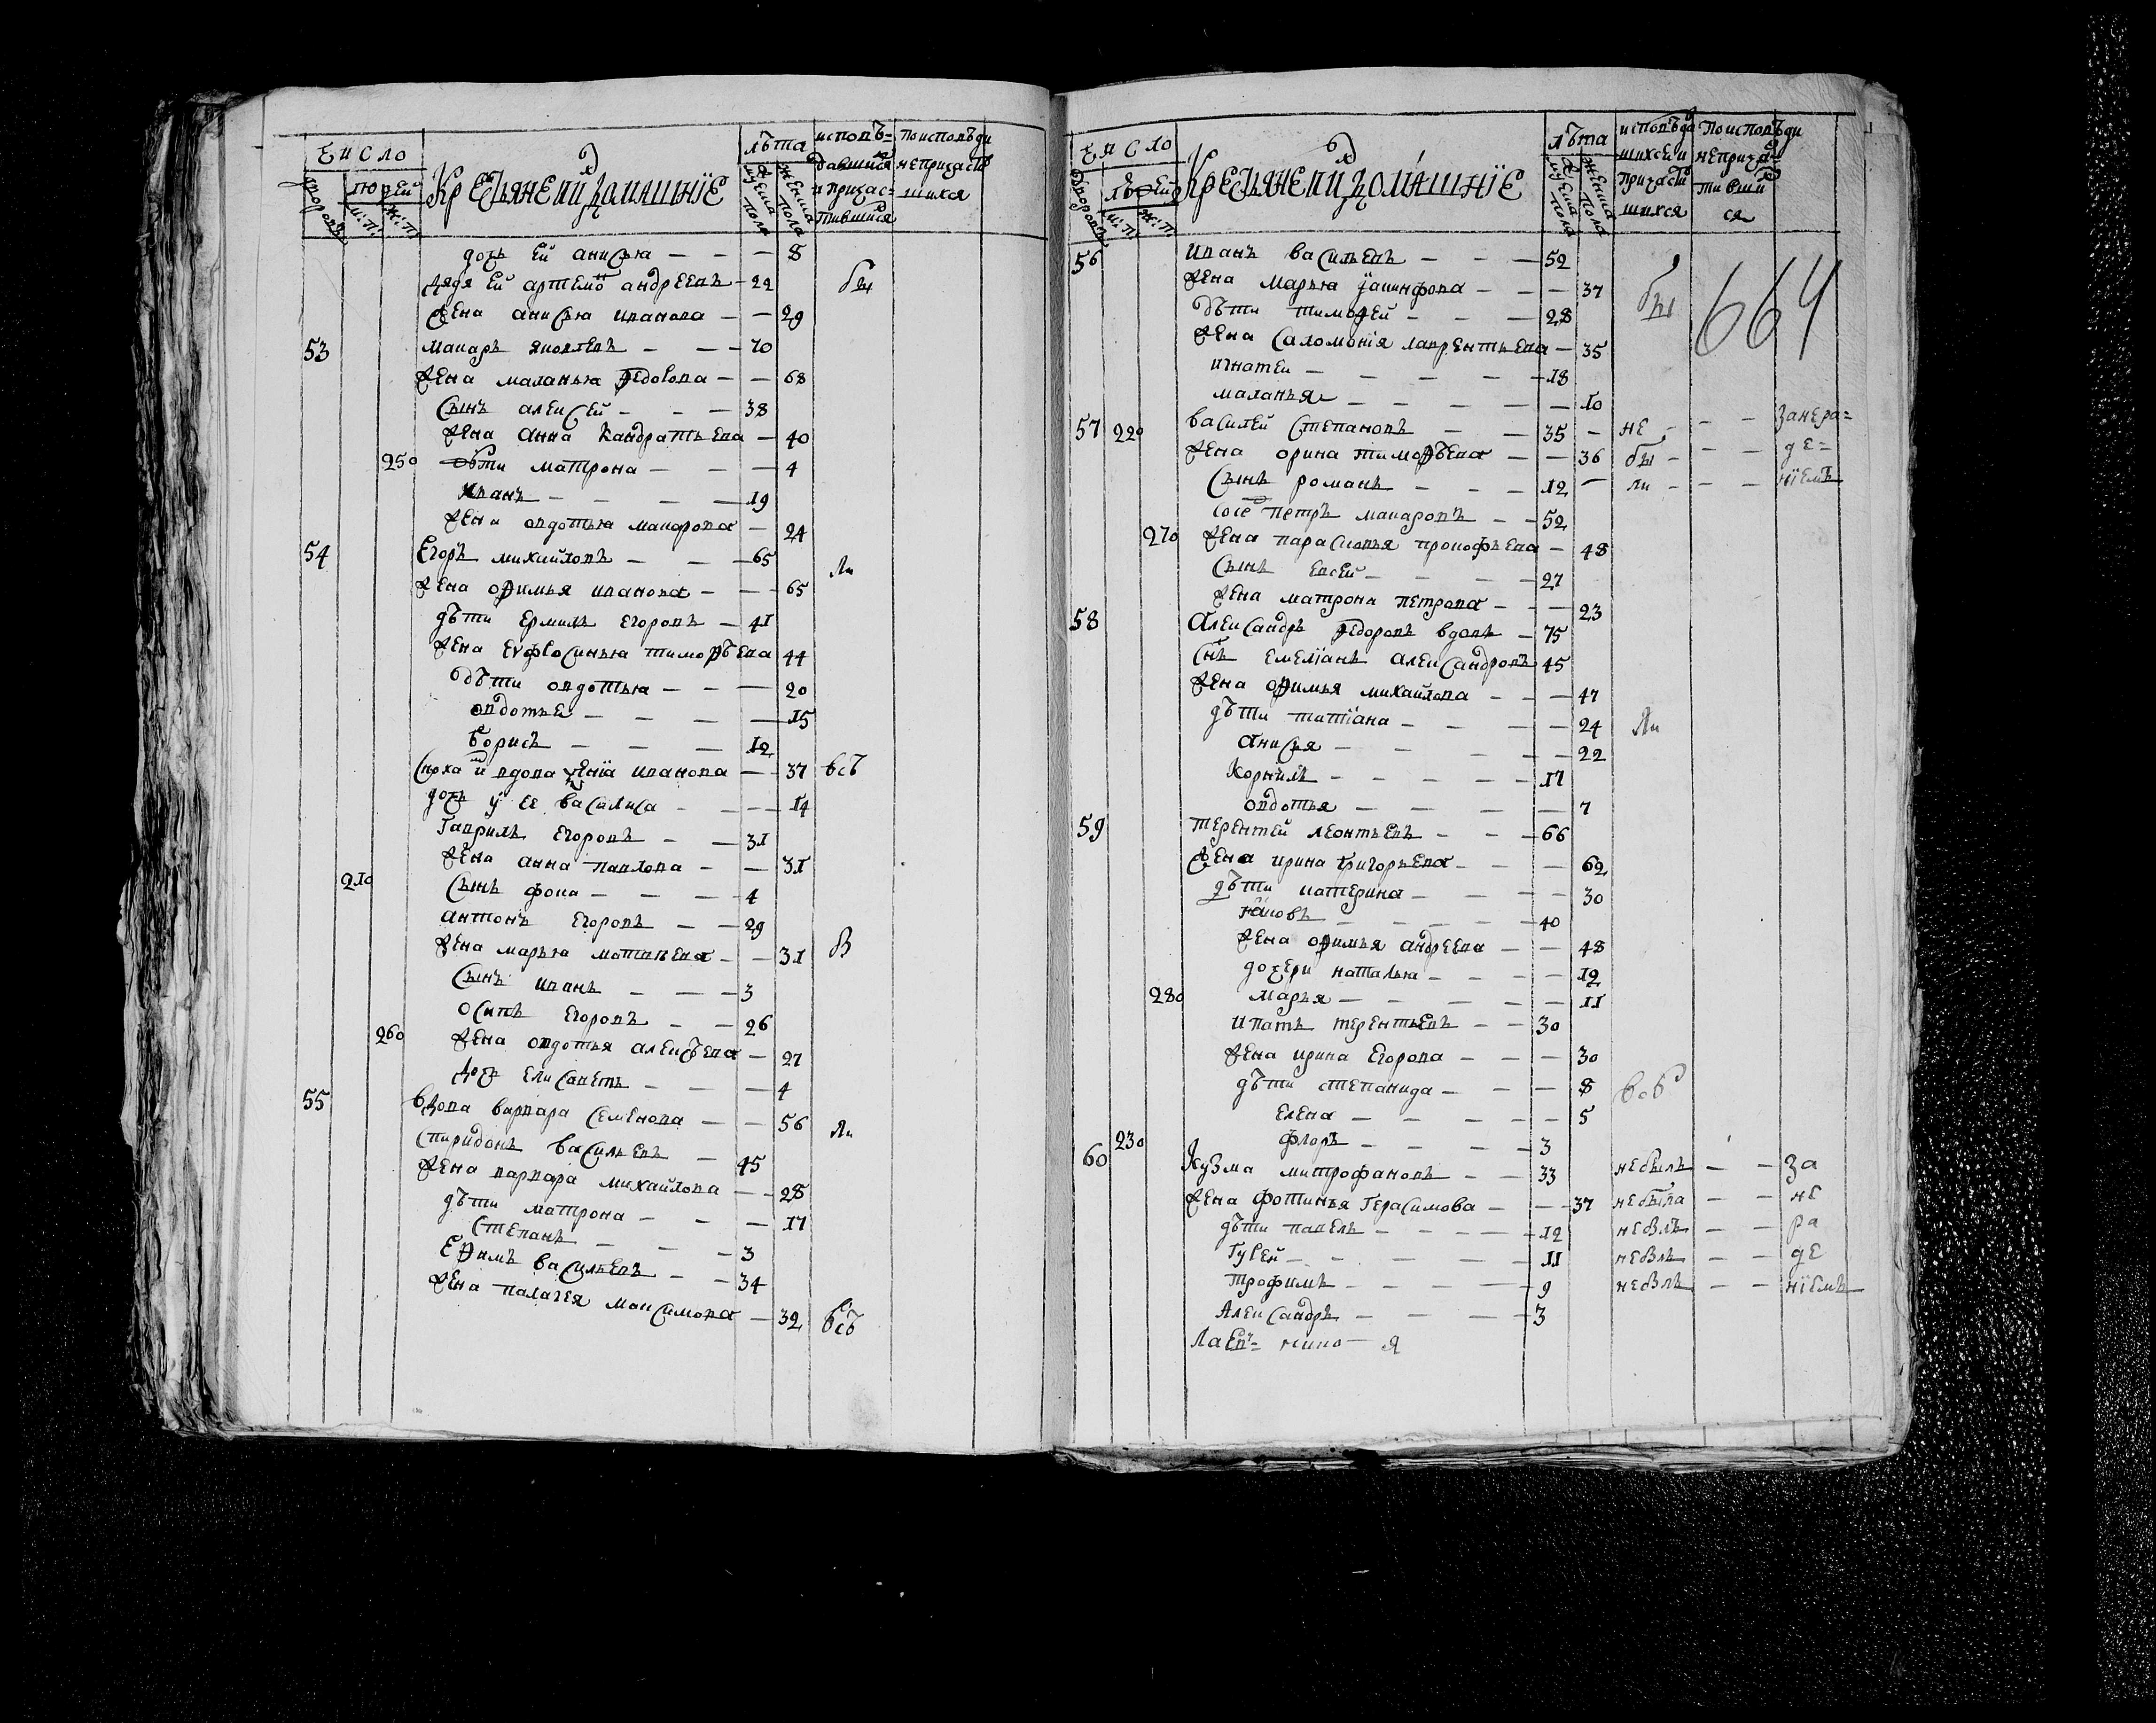 число
дворовъ
людей
м: п:
ж: п:
Крестьяне и домашнїе
лѣта
мужеска пола
женска пола
исповѣ=
давшихся
и причас=
тившихся
по исповѣди
не причасти
шихся
дочь ей анисья — — — 8
дядя ей артемо андреевъ — 22 бы
жена анисья иванова — — 29
53 макаръ яковлевъ — — — 70
жена маланья федосова — — 68
сынъ алексей — — — 38
жена анна кандратьева — 40
250 дѣти матрона — — — 4
иванъ — — — — 19
жена овдотья макарова — 24
54 Егоръ михайловъ — — — 65
ли
жена офимья иванова — — — 65
дѣти ермилъ егоровъ — 41
жена еѵфросинья тимофѣева 44
дѣти овдотья — — — 20
овдотье — — — — 15
борисъ — — — 12
сноха и вдова ксенїа иванова — — 37 всѣ
дочь у ее василиса — — — 14
гаврилъ егоровъ — — 31
жена анна павлова — — 31
210 сынъ фока — — — 4
антонъ егоровъ — — 29
жена марья матвеева — — 31 в
сынъ иванъ — — — 3
осипъ егоровъ — — 26
260 жена овдотья алексѣева — 27
дочь елисаветъ — — — 4
55 вдова варвара семенова — — 56
ли
спиридонъ васильевъ — 45
жена варвара михайлова — — 28
дѣти матрона — — — 17
степанъ — — — 3
Ефимъ васильевъ — — 34
жена палагея максимова — 32 всѣ
число
дворовъ
людей
м: п:
ж: п:
Крестьяне и домашнїе
лѣта
мужеска пола
женска пола
исповѣда
шихся и
причасти
шихся
По исповѣди
не прича
тивши
ся
56 иванъ васильевъ — — — 52
664
жена марья ꙗкинфова — — — 37 бы
дѣти тимофей — — — 28
жена саломонїя лаврентьева — 35
игнатеи — — — — — 18
маланья — — — — — 10
57 220 василей степановъ — — 35 — не — — — за нера=
жена орина тимофѣева — — 36 бы — — — де=
сынъ романъ — — — 12 — ли — — — нїемъ
сосе петръ макаровъ — — 52
270 жена парасковья прокофьева — 48
сынъ евсей — — — — 27
жена матрона петрова — — — 23
58 александръ федоровъ вдовъ — 75
снъ емелїанъ александровъ 45
жена офимья михайлова — — — 47
дѣти татїана — — — — 24 ли
анисья — — — — — 22
корнилъ — — — — — 17
овдотья — — — — 7
59 терентей леонтьевъ — — — 66
жена ирина григорьева — — — 62
дѣти катерина — — — — 30
ꙗковъ — — — — — 40
жена офимья андреева — — 48
дочери наталья — — — — 12
280 марья — — — — — 11
ипатъ терентьевъ — — 30
жена ирина егорова — — — 30
дѣти степанида — — — 8 всѣ
елена — — — — — 5
230 флоръ — — — — 3
60 Кузма митрофановъ — — 33 не былъ — — за
жена фотинья герасимова — — — 37 не была — — не
дѣти павелъ — — — — 12 не бълъ — — ра
гурей — — — — 11 не бълъ — — де
трофимъ — — — — 9 не бълъ — — нїемъ
александръ — — — — 3